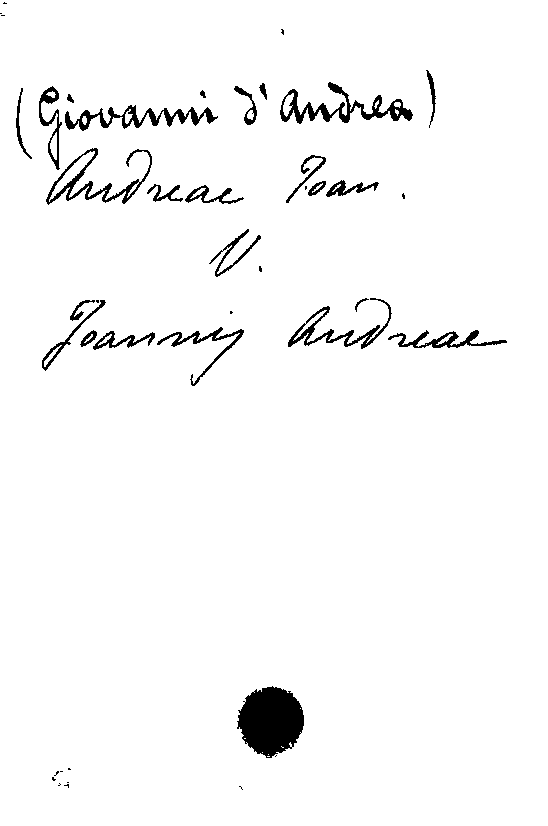 (Giovanni d'Andrea)
Andreae Joan.
V.
Joannis Andreae